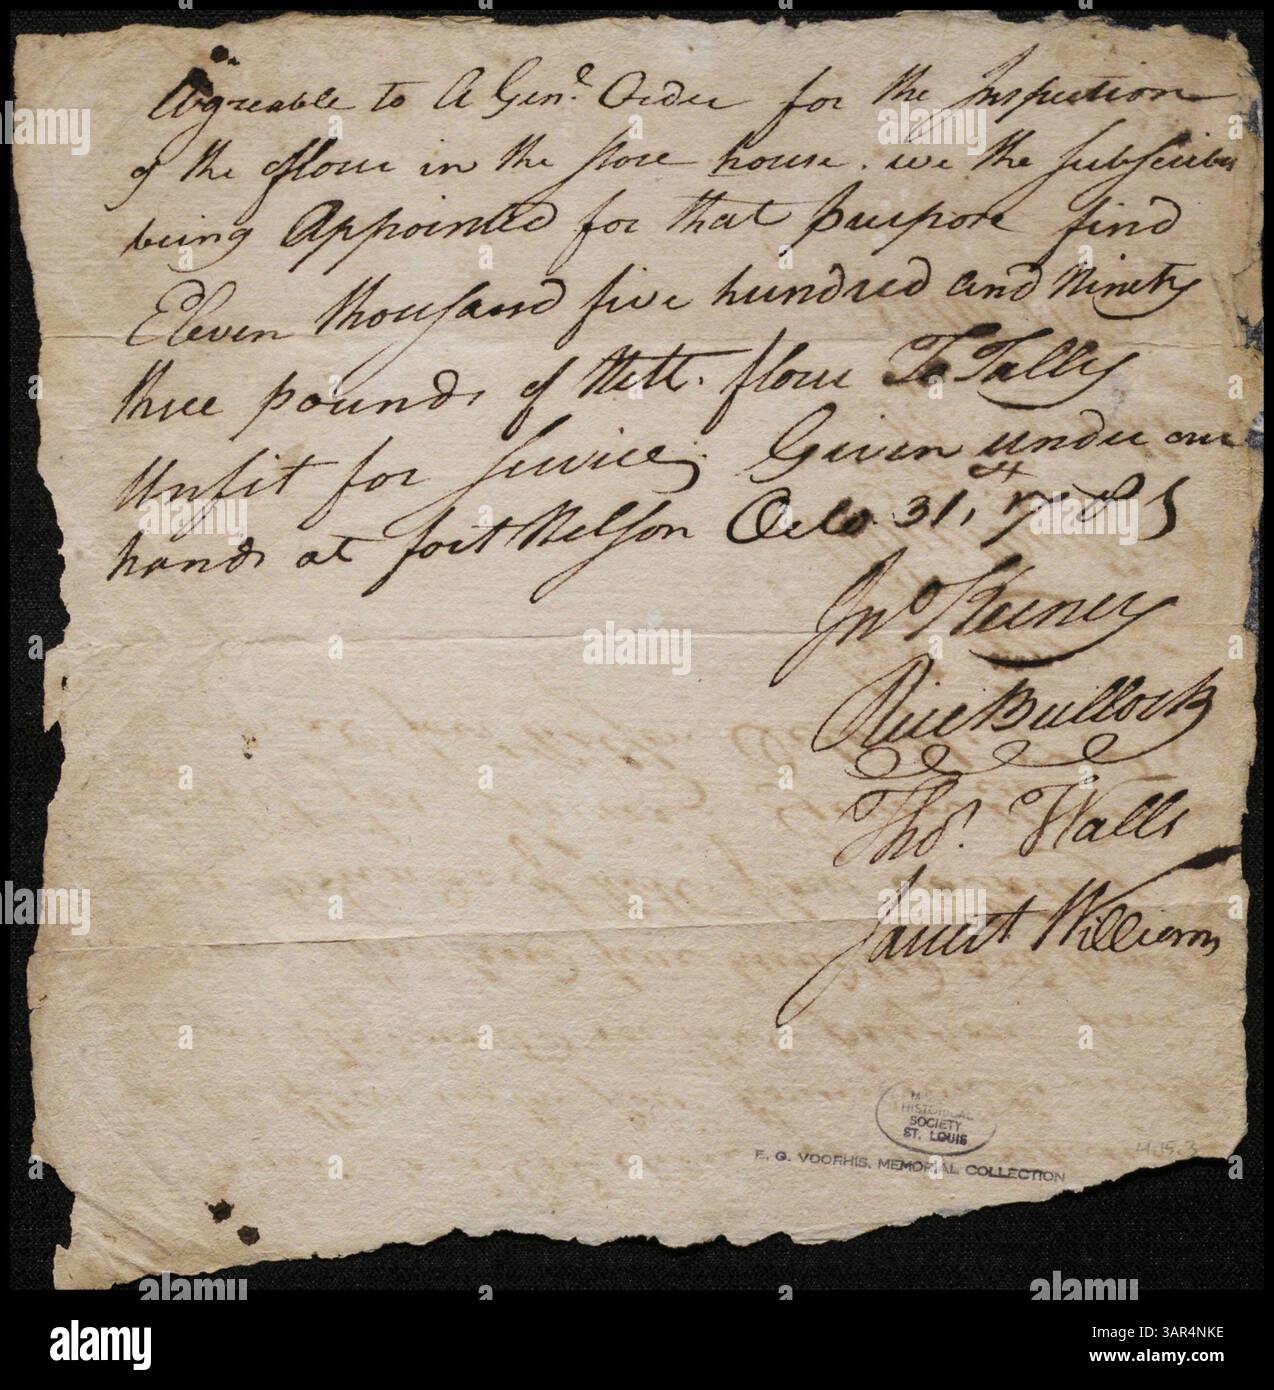 Agreeable to A Genl. Order for the Inspection
of the flour in the store house. we the subscribers
being Appointed for that purpose find
Eleven thousand five hundred and Ninety
three pounds of Nett. flour To Tally
Unfit for service, Given under our
hands at fort Nelson Octo. 31, 1785
Jno Keeney
Rice Bullock
Thos. Walls
Jarrett Williams
HISTORICAL
SOCIETY
ST. LOUIS
E. G. VOORHIS. MEMORIAL COLLECTION
4.15.3
alamy
Image ID: 3AR4NKE
www.alamy.com